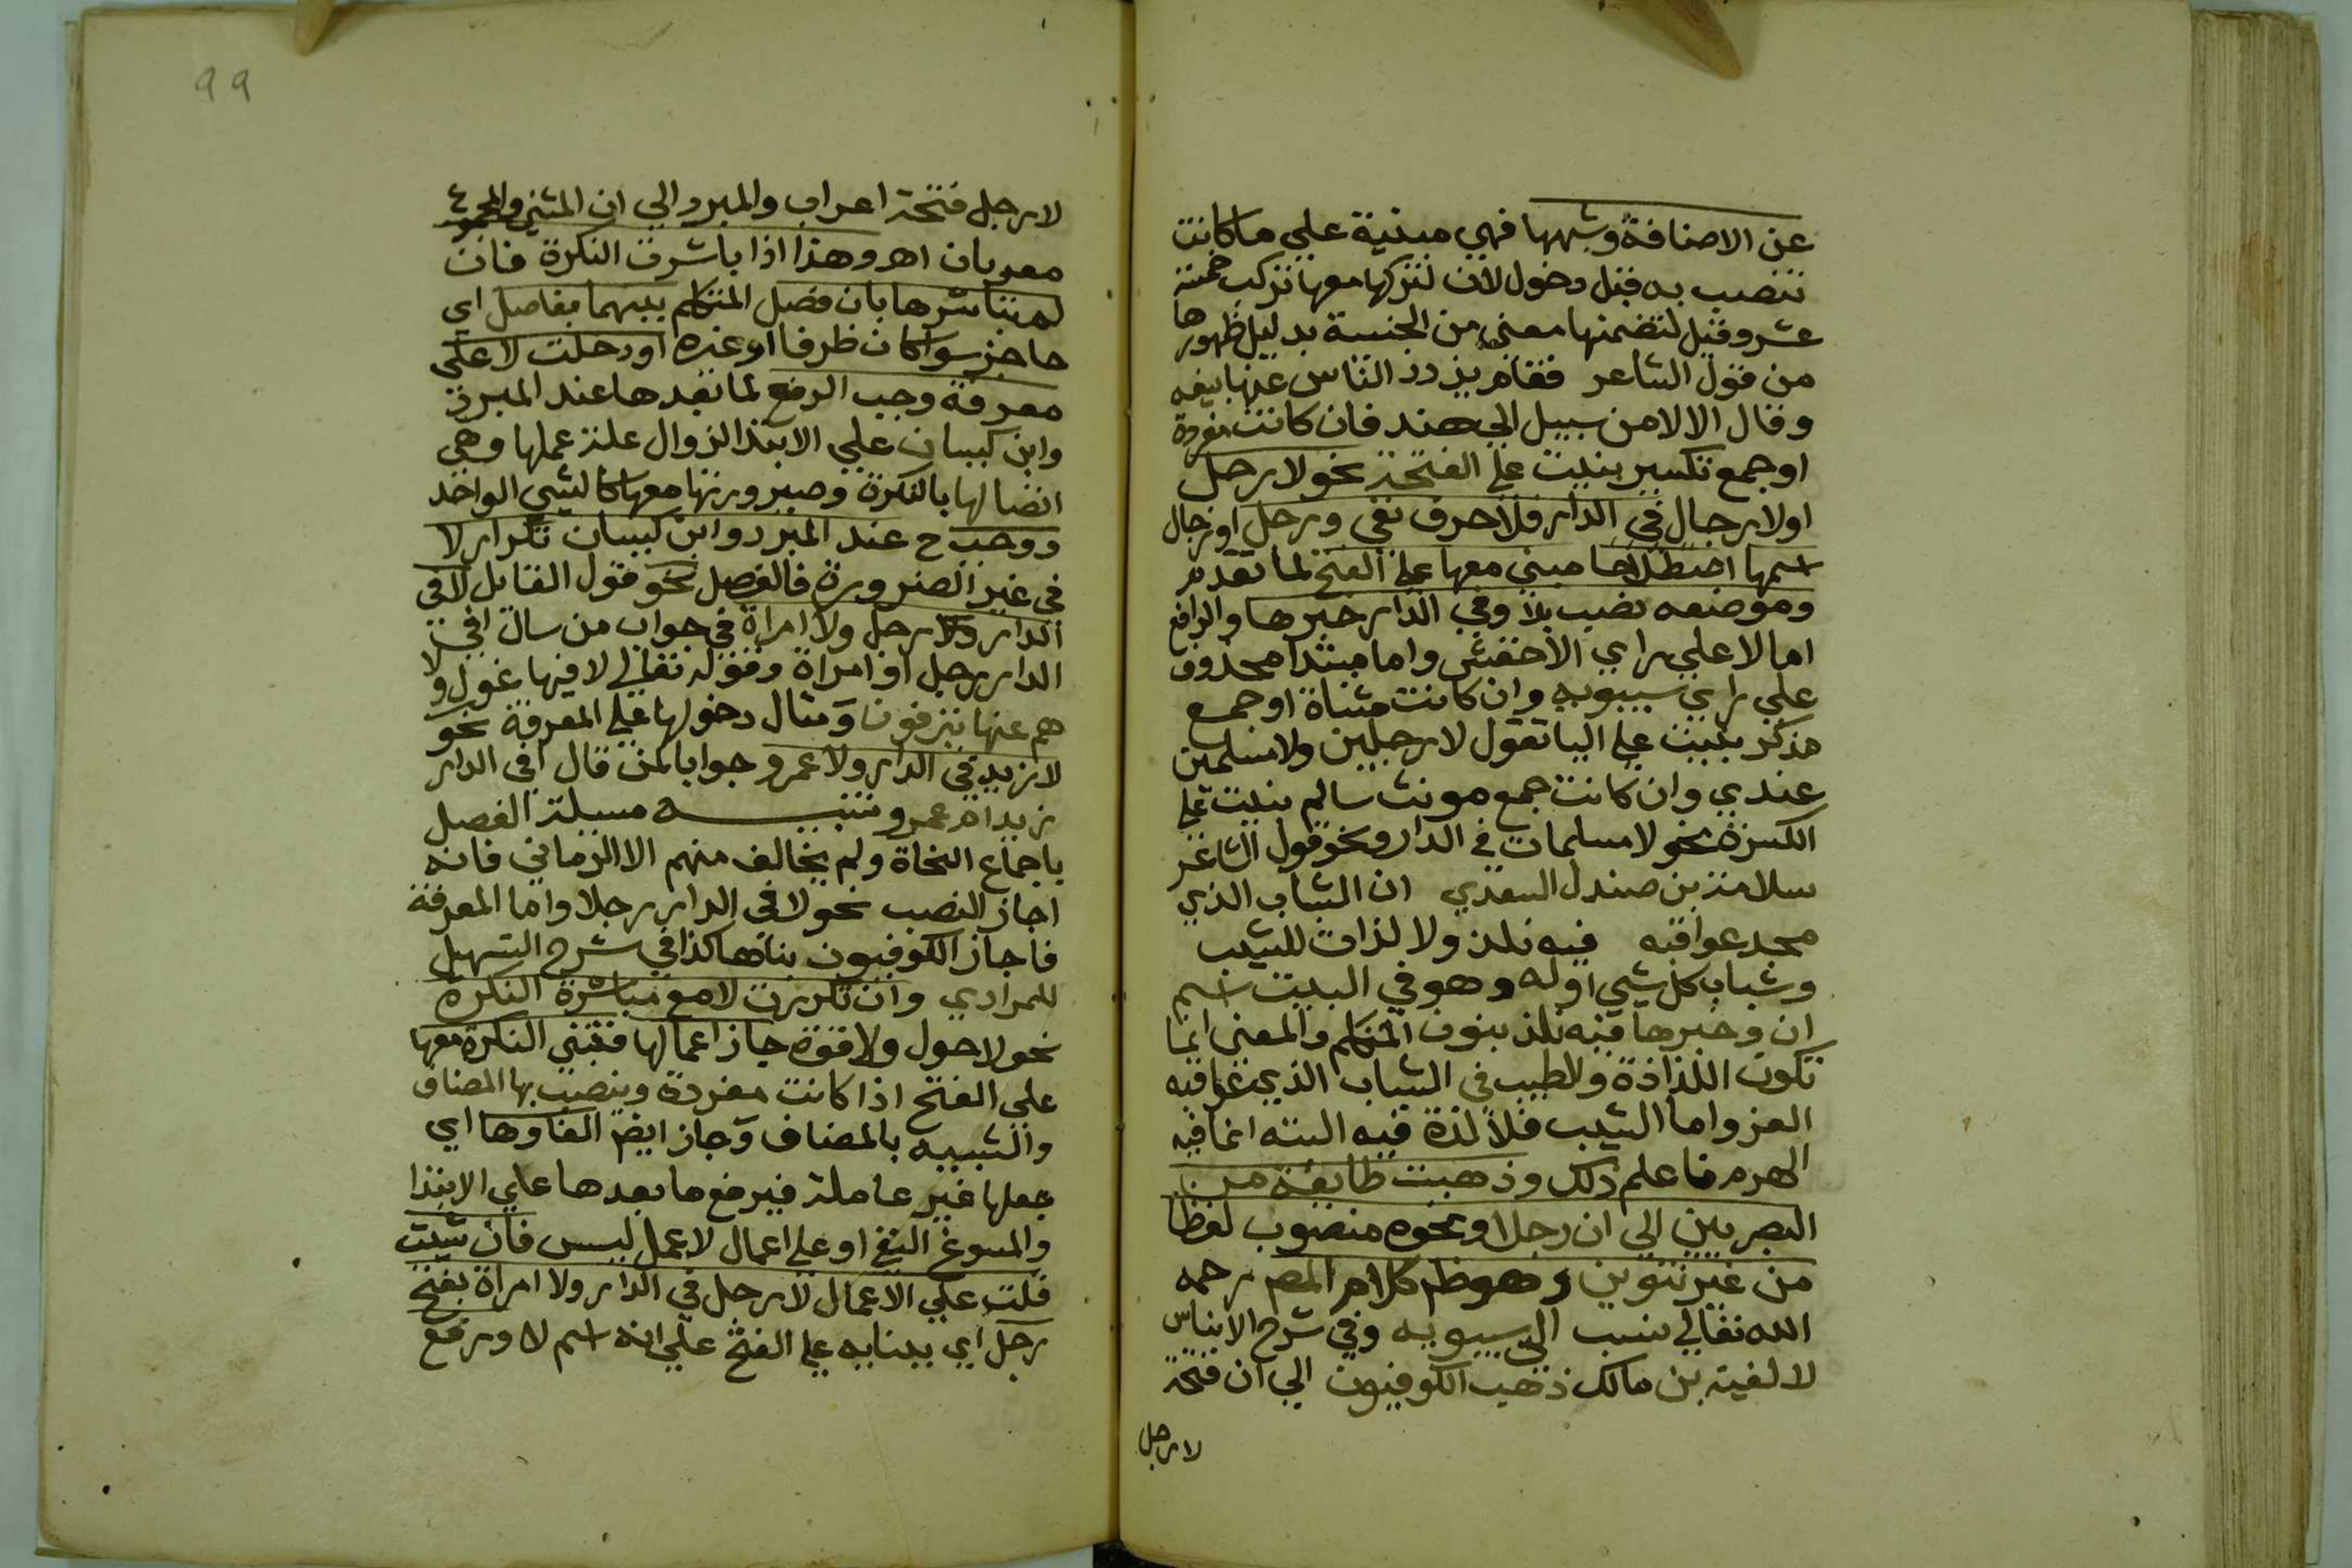 عن الاضافة وشبهها فهي مبنية علي ما كانت
تنصب به قبل دخول لان لتركبها معها تركب خمسة
عشر وقيل لتضمنها معني من الجنسية بدليل ظهورها
من قول الشاعر فقام يذود الناس عنها بسيفه
وقال الا لا من سبيل الي هند فان كانت مفردة
او جمع تكسير بنيت علي الفتحة نحو لا رجل
او لا رجال في الدار فلا حرف نفي ورجل او رجال
اسمها مبني معها علي الفتح لما تقدم
وموضعه نصب بلا وفي الدار خبرها والرافع
اما لا علي راي الاخفش واما مبتدا محذوف
علي راي سيبويه وان كانت مثناة او جمع
مذكر بنيت علي اليا تقول لا رجلين ولا مسلمين
عندي وان كانت جمع مونث سالم بنيت علي
الكسرة نحو لا مسلمات في الدار ونحو قول الشاعر
سلامة بن صندل السعدي ان الشباب الذي
مجد عواقبه فيه نلذ ولا لذات للشيب
وشباب كل شي اوله وهو في البيت اسم
ان وخبرها فيه نلذ بنون المتكلم والمعني انما
تكون اللذاذة والطيب في الشباب الذي عواقبه
العز واما الشيب فلا لذة فيه البته انما فيه
الهرم فاعلم ذلك وذهبت طايفة من
البصريين الي ان رجلا ونحوه منصوب لفظا
من غير تنوين وهو ظم كلام المص رحمه
الله تعالي ينسب الي سيبويه وفي شرح الابناس
لالفية بن مالك ذهب الكوفيون الي ان فتحة
لا رجل
99
لا رجل فتحة اعراب والمبرد الي ان المثني والمجموع
معربان اهـ وهذا اذا باشرت النكرة فان
لم تباشرها بان فصل المتكلم بينهما بفاصل اي
حاجز سوا كان ظرفا او غيره او دخلت لا علي
معرفة وجب الرفع لما بعدها عند المبرد
وابن كيسان علي الابتدا لزوال علة عملها وهي
اتصالها بالنكرة وصيرورتها معها كالشي الواحد
ووجب ح عند المبرد وابن كيسان تكرار لا
في غير الضرورة فالفصل نحو قول القائل لا في
الدار رجل ولا امراة في جواب من سال افي
الدار رجل او امراة وقوله تعالي لا فيها غول ولا
هم عنها ينزفون ومثال دخولها علي المعرفة نحو
لا زيد في الدار ولا عمرو جوابا لمن قال افي الدار
زيد ام عمرو تنبيه مسيلة الفصل
باجماع النحاة ولم يخالف منهم الا الرماني فانه
اجاز النصب نحو لا في الدار رجلا واما المعرفة
فاجاز الكوفيون بناها كذا في شرح التسهيل
للمرادي وان تكررت لا مع مباشرة النكرة
نحو لا حول ولا قوة جاز اعمالها فتبني النكرة معها
علي الفتح اذا كانت مفردة وينصب بها المضاف
والشبيه بالمضاف وجاز ايض الغاوها اي
جعلها غير عاملة فيرفع ما بعدها علي الابتدا
والمسوغ النفي او علي اعمال لا عمل ليس فان شيت
قلت علي الاعمال لا رجل في الدار ولا امراة بفتح
رجل اي ببنايه علي الفتح علي انه اسم لا ورفع